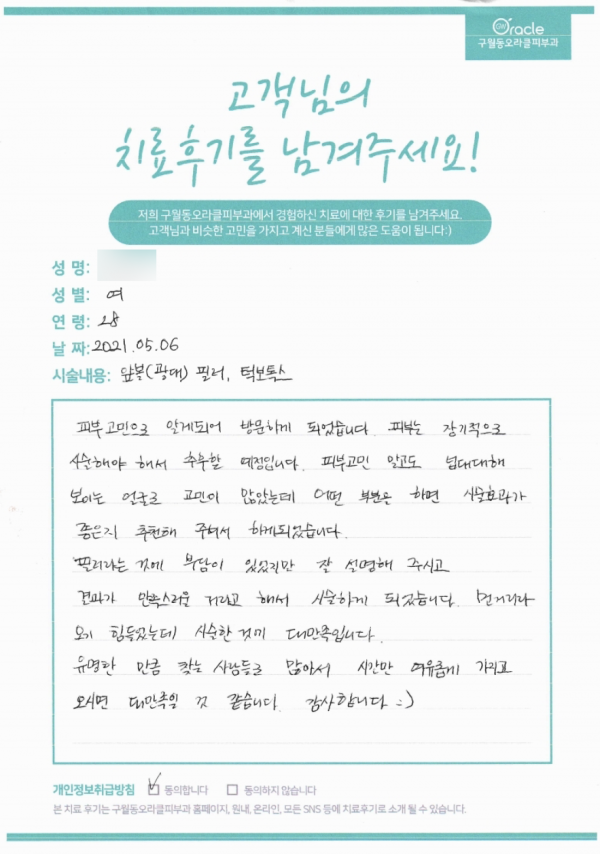 Oracle
구월동오라클피부과
고객님의
치료후기를 남겨주세요!
저희 구월동오라클피부과에서 경험하신 치료에 대한 후기를 남겨주세요.
고객님과 비슷한 고민을 가지고 계신 분들에게 많은 도움이 됩니다:)
성 명:
성 별: 여
연 령: 28
날 짜: 2021.05.06
시술내용: 앞볼(광대) 필러, 턱보톡스
피부고민으로 알게되어 방문하게 되었습니다. 피부는 장기적으로
시술해야 해서 추후할 예정입니다. 피부고민 말고도 넙대대해
보이는 얼굴로 고민이 많았는데 어떤 부분을 하면 시술효과가
좋은지 추천해 주셔서 하게되었습니다.
필러라는 것에 부담이 있었지만 잘 설명해 주시고
결과가 만족스러울 거라고 해서 시술하게 되었습니다. 먼거리라
오기 힘들었는데 시술한 것이 대만족입니다.
유명한 만큼 찾는 사람들로 많아서 시간만 여유롭게 가지고
오시면 대만족일 것 같습니다. 감사합니다 :)
개인정보취급방침 동의합니다 동의하지 않습니다
본 치료 후기는 구월동오라클피부과 홈페이지, 원내, 온라인, 모든 SNS 등에 치료후기로 소개 될 수 있습니다.